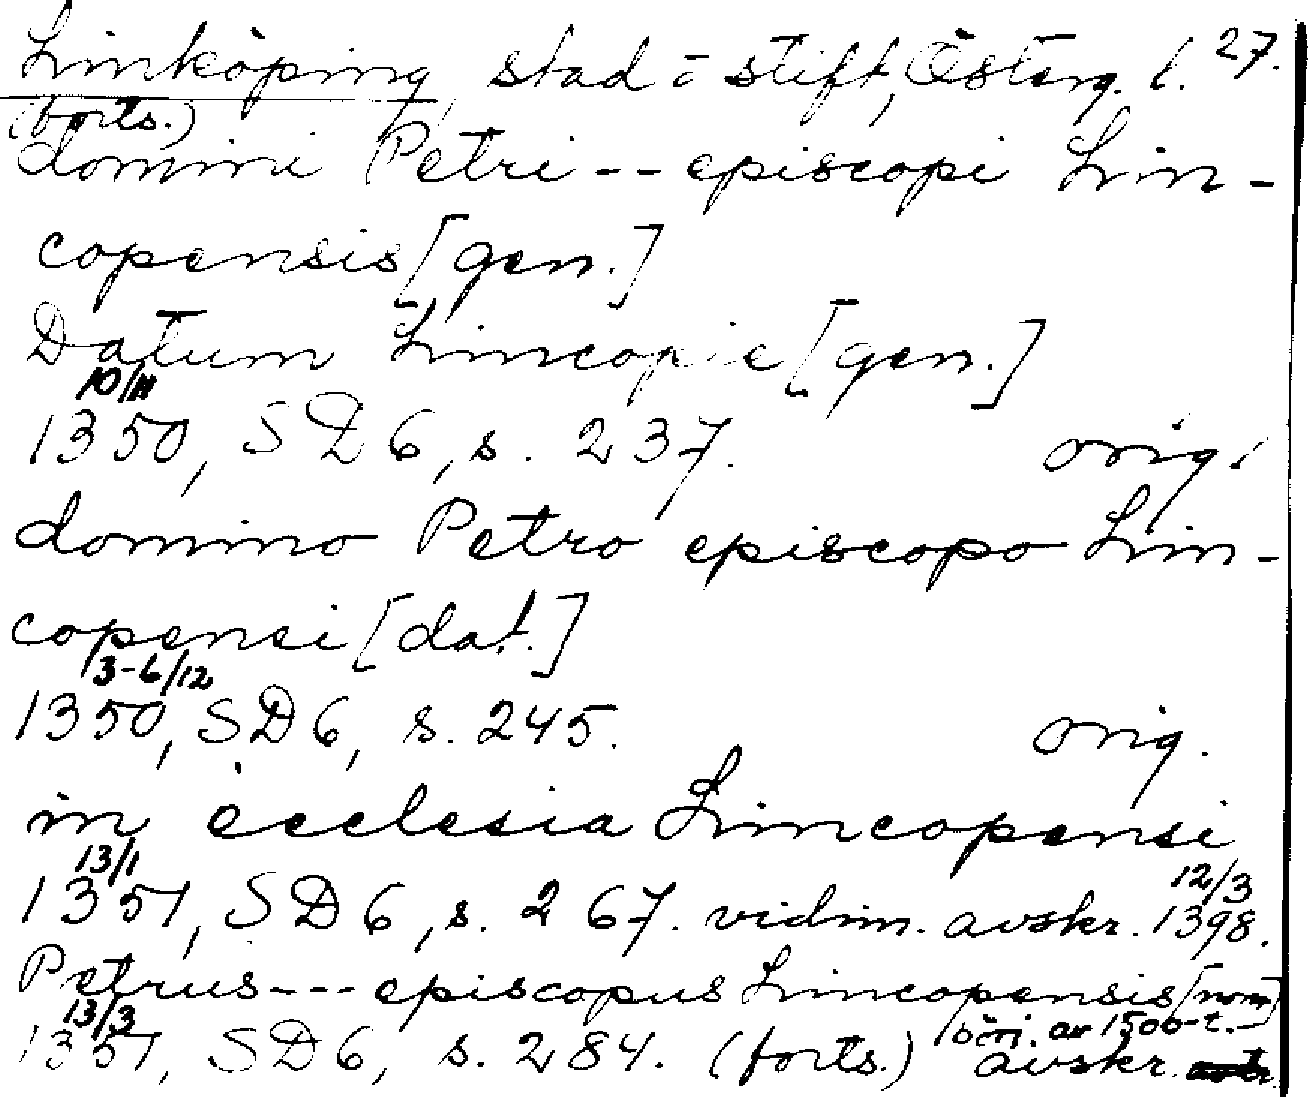 Linköping, stad o stift, Österg. l. 27.
(forts.)
domini Petri -- episcopi Lin-
copensis [gen.]
Datum Lincopie [gen.]
10/11
1350, SD 6, s. 237. orig.
domino Petro episcopo Lin-
copensi [dat.]
3-6/12
1350, SD 6, s. 245. orig.
in ecclesia Lincopensi
13/1 12/3
1351, SD 6, s. 267. vidim. avskr. 1398.
Petrus --- episcopus Lincopensis [nom.]
13/3 börj. av 1500-t.
1351, SD 6, s. 284. (forts.) avskr.